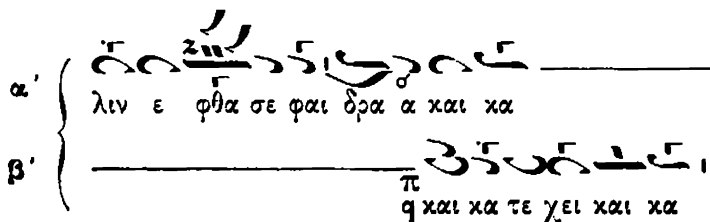 α′ λιν ε φθα σε φαι δρα α και κα
β′ π q και κα τε χει και κα